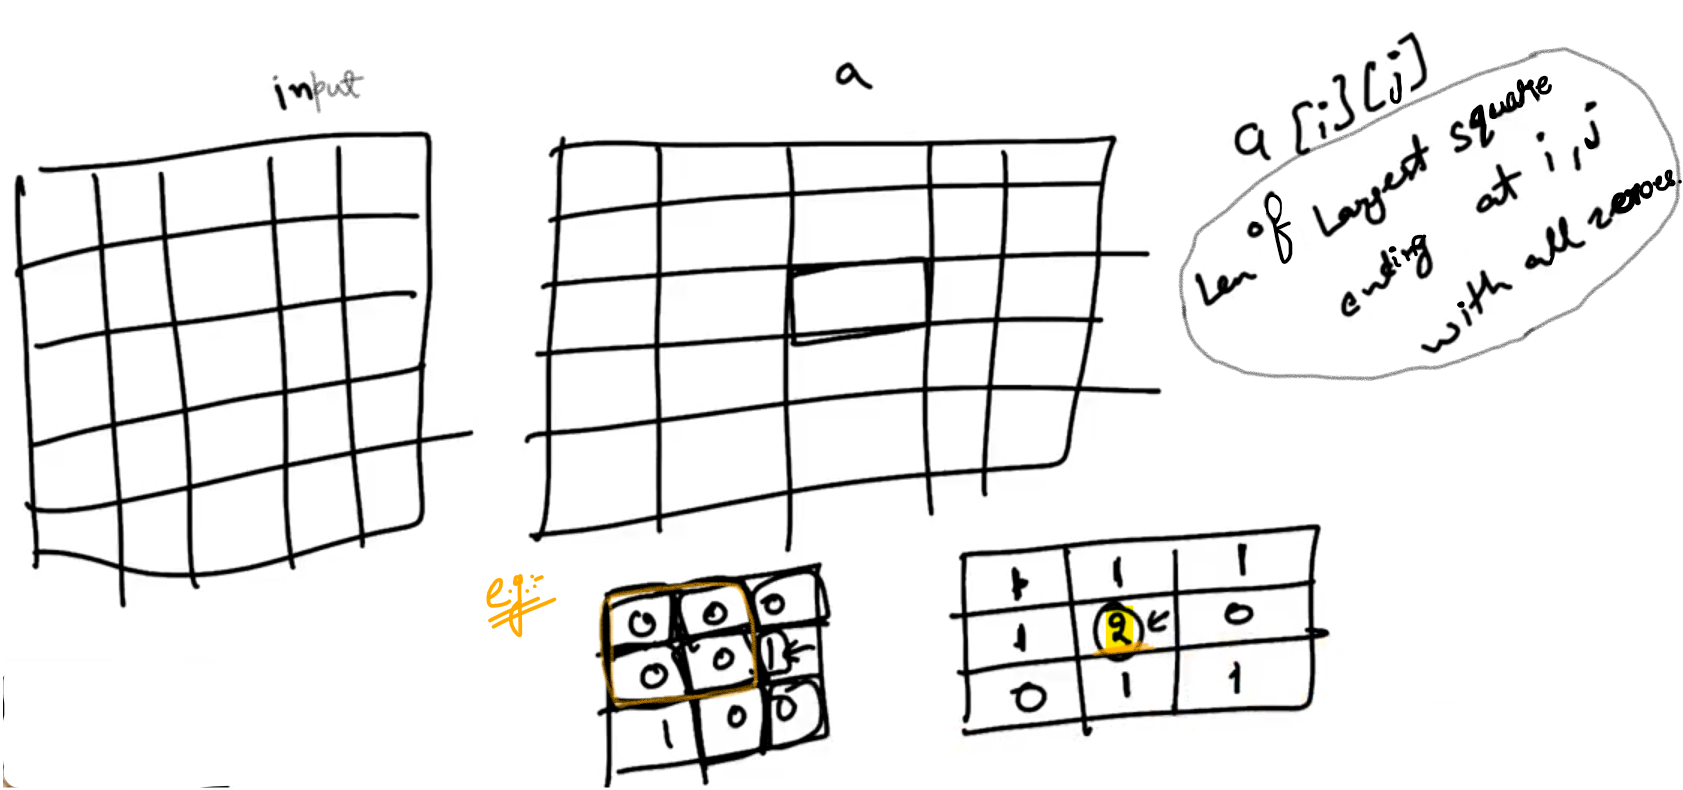 input
a
a[i][j]
Len of Largest square
ending at i,j
with all zeroes.
e.g:-
0 0 0
0 0 1 ←
1 0 0
1 1 1
1 2 ← 0
0 1 1